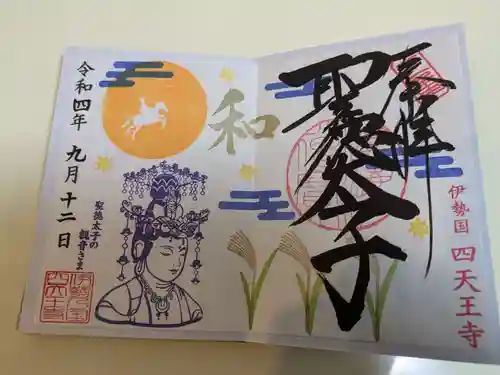 奉拝
聖徳太子
伊勢国 四天王寺
和
令和四年 九月十二日
聖徳太子の
観音さま